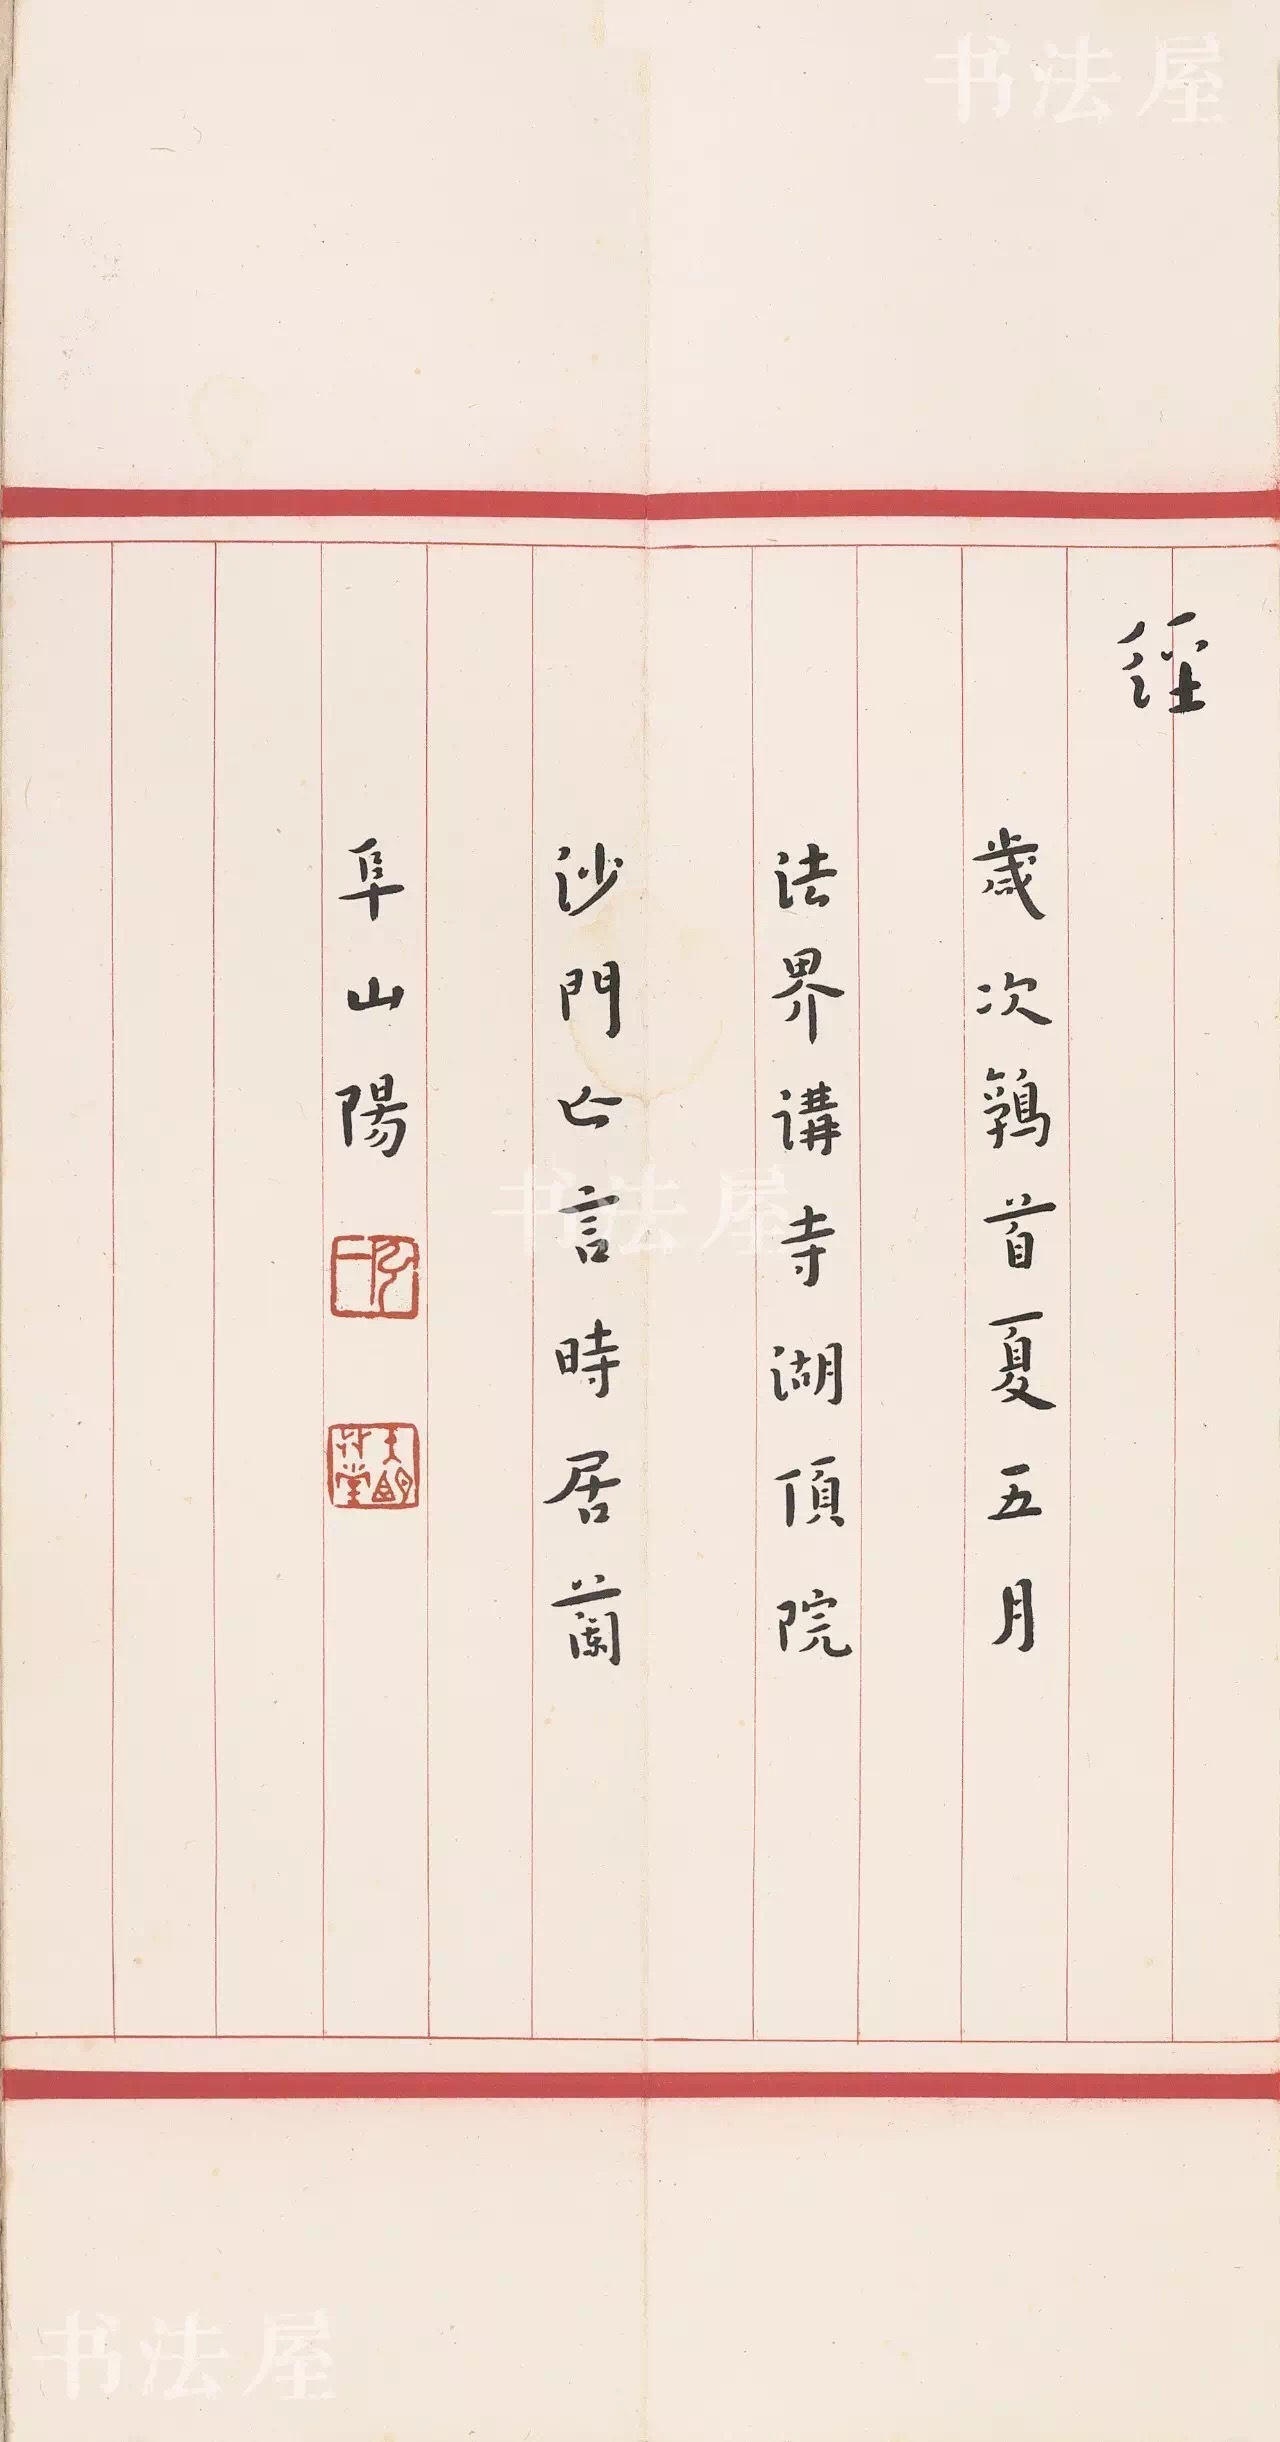 书法屋
經
歲次鶉首夏五月
法界講寺湖頂院
沙門亡言時居蘭
阜山陽
弘一
书法屋
书法屋